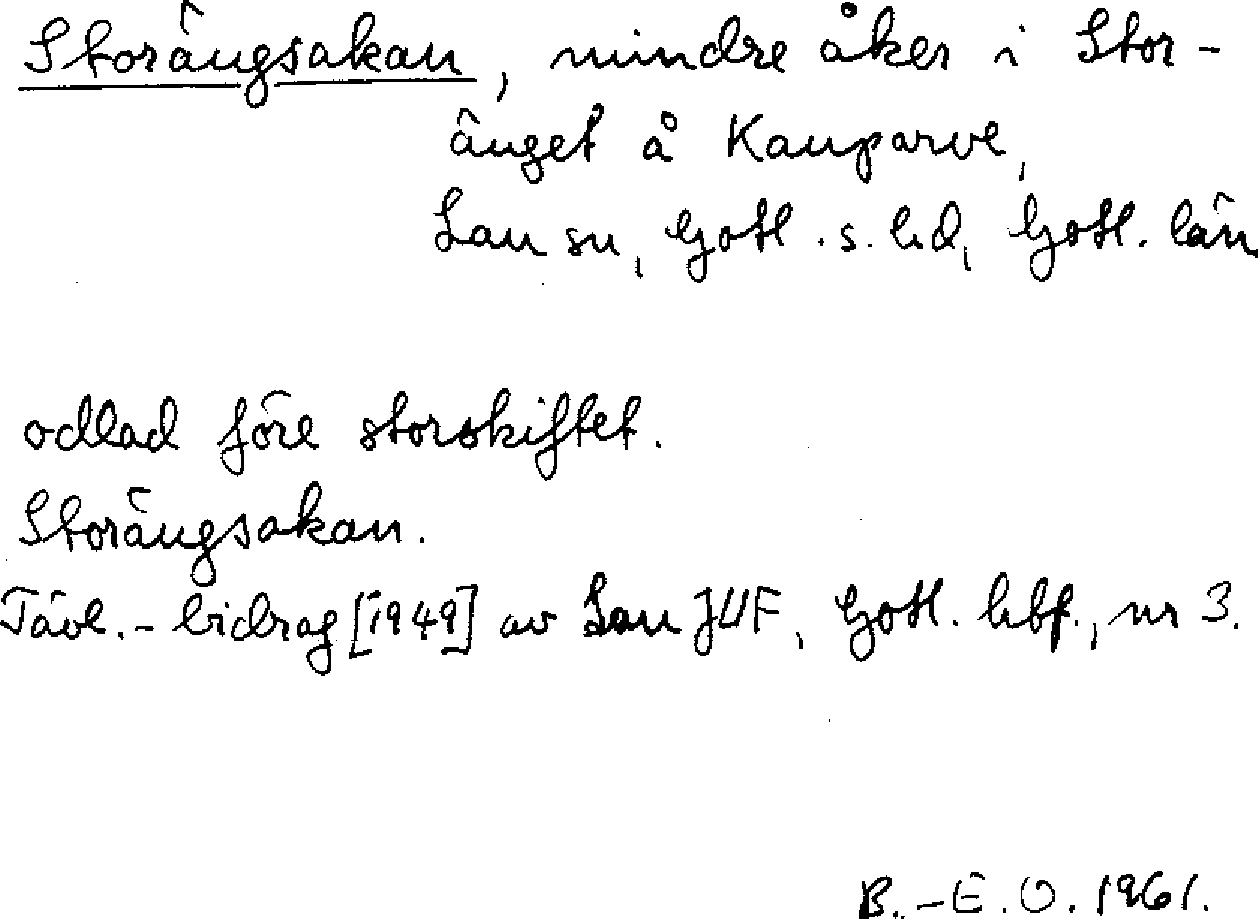 Storängsakan, mindre åker i Stor-
änget å Kauparve,
Lau sn, Gotl. s. hd, Gotl. län
odlad före storskiftet.
Storängsakan.
Tävl.-bidrag [1949] av Lau JUF, Gotl. hbf., nr 3.
B.-E.O. 1961.